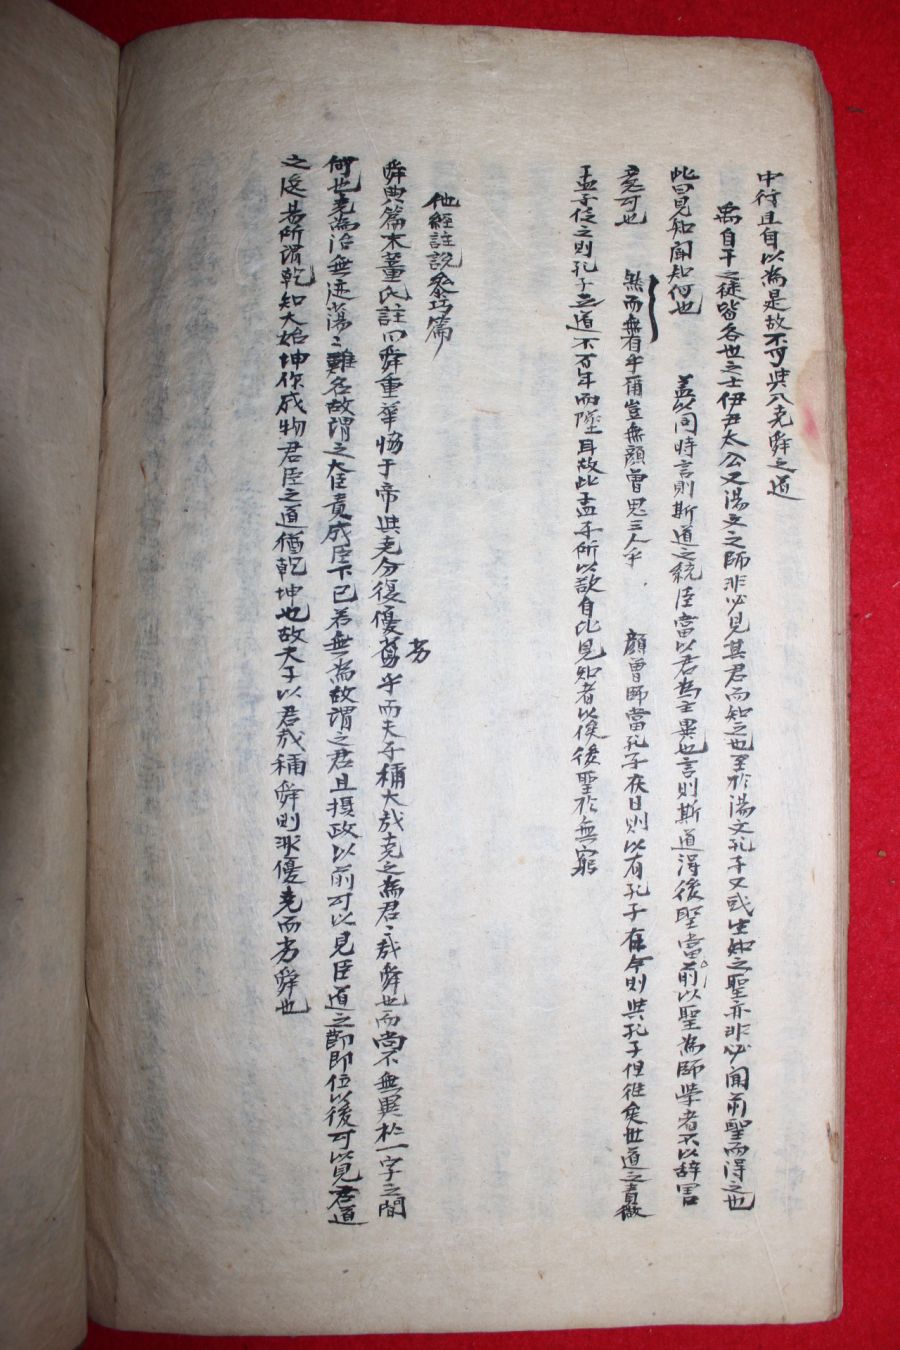 中行且自以為是故不可與入堯舜之道
禹自干之徒皆各世之士伊尹太公又湯文之師非必見其君而知之也至於湯文孔子又或生知之聖亦非必聞前聖而得之也
此曰見知聞知何也 盖以同時言則斯道之統臣當以君為主異世言則斯道得後聖當前以聖為師學者不以辞害
意可也 然而無有乎爾豈無顔曾思三人乎 顔曾師當孔子在日則以有孔子在今則與孔子但往矣世道之責微
孟子任之則孔子之道不百年而墜耳故此孟子所以欲自比見知者以俟後聖於無窮
他經註説叅巧篇
舜典篇末董氏註曰舜重華恊于帝與堯分復優劣乎而夫子稱大哉堯之為君君哉舜也而尚不無異於一字之間
劣
何也堯為治無迹蕩〻難名故謂之大臣責成臣下已若無為故謂之君且摂政以前可以見臣道之節即位以後可以見君道
之följ易所謂乾知大始坤作成物君臣之道猶乾坤也故夫子以君哉稱舜則非優堯而劣舜也